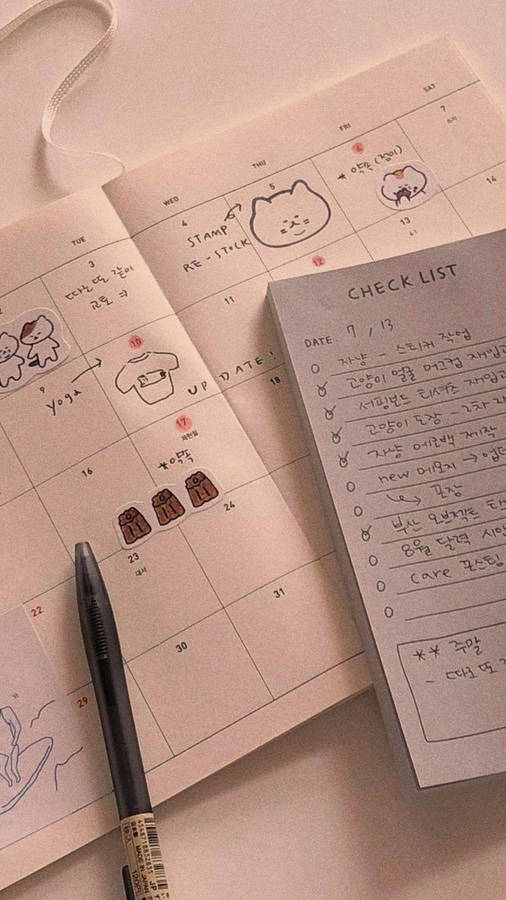 TUE
WED
THU
FRI
SAT
3
따로 또 같이
4
STAMP
RE-STOCK
5
6
* 약속 (정이)
7
소서
9
yoga
10
UP DATE!
11
12
13
14
16
17
제헌절
*약속
18
22
23
대서
24
29
30
31
CHECK LIST
DATE. 7 / 13
자냥 - 스티커 작업
고양이 얼굴 머그컵 재입고
서핑보드 티셔츠 재입고
고양이 도장 - 2차
자냥 에코백 제작
new 메모지 →
포장
부산 오브젝트
8월 달력
care 포스팅
** 주말
- 따로 또
MADE IN JAPAN